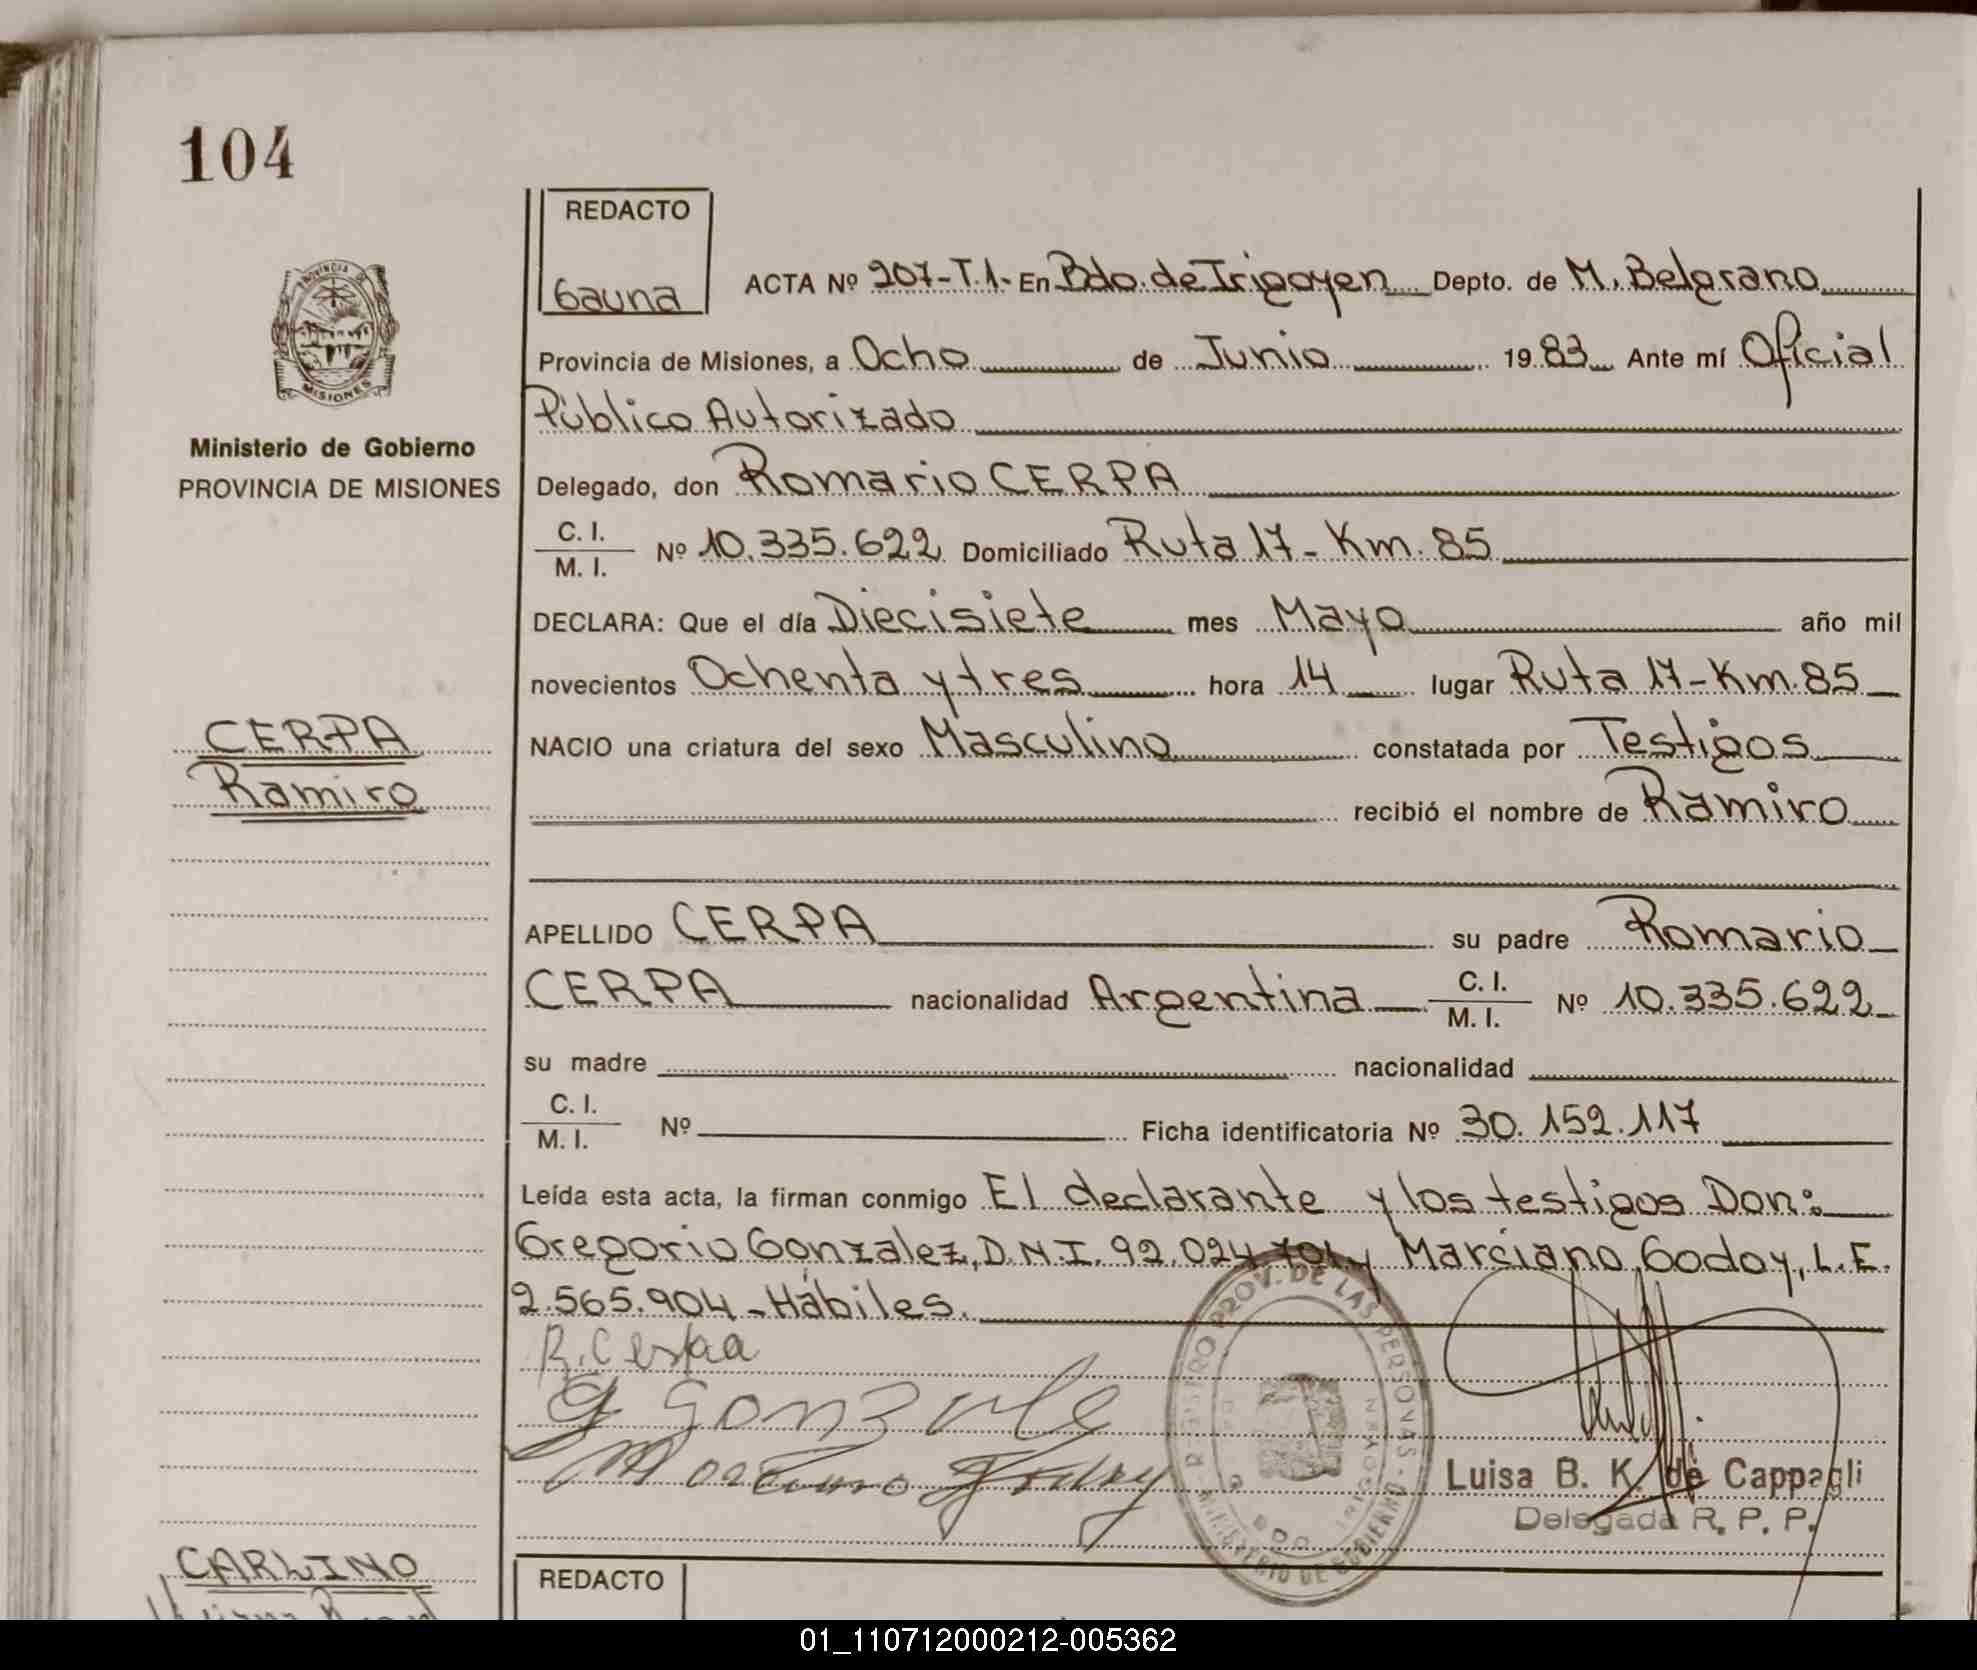 104
REDACTO
Gauna
ACTA Nº 207-T.1- En Bdo. de Irigoyen Depto. de M. Belgrano
PROVINCIA DE
MISIONES
Provincia de Misiones, a Ocho de Junio 19 83 Ante mí Oficial
Público Autorizado
Ministerio de Gobierno
PROVINCIA DE MISIONES
Delegado, don Romario CERPA
C. I.
M. I. Nº 10.335.622 Domiciliado Ruta 17 - Km. 85
DECLARA: Que el día Diecisiete mes Mayo año mil
novecientos Ochenta y tres hora 14 lugar Ruta 17 - Km. 85
CERPA
Ramiro
NACIO una criatura del sexo Masculino constatada por Testigos
recibió el nombre de Ramiro
APELLIDO CERPA su padre Romario
CERPA nacionalidad Argentina C. I. M. I. Nº 10.335.622
su madre nacionalidad
C. I.
M. I. Nº Ficha identificatoria Nº 30.152.117
Leída esta acta, la firman conmigo El declarante y los testigos Don:
Gregorio Gonzalez, D.N.I. 92.024.701 y Marciano Godoy, L.E.
2.565.904 - Hábiles.
R. Cerpa
G Gonzale
Marciano Godoy
REGISTRO PROV. DE LAS PERSONAS
MINISTERIO DE GOBIERNO
BDO. IRIGOYEN
Luisa B. K. de Cappagli
Delegada R. P. P.
CARLINO
REDACTO
01_110712000212-005362